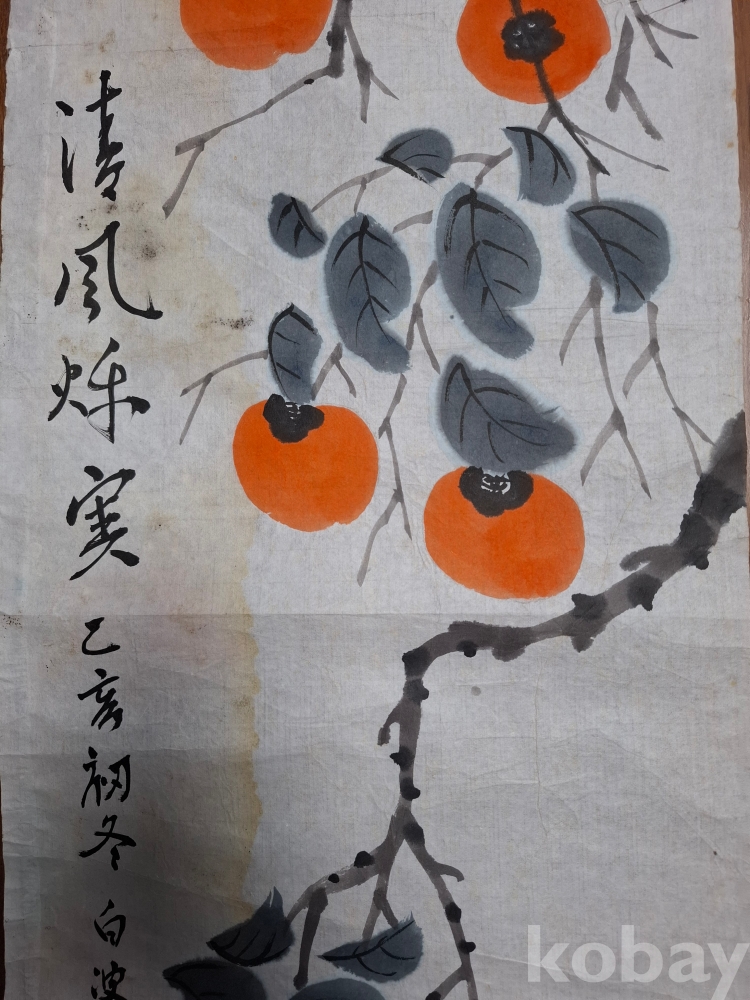 清風秌實 乙亥初冬 白波
kobay